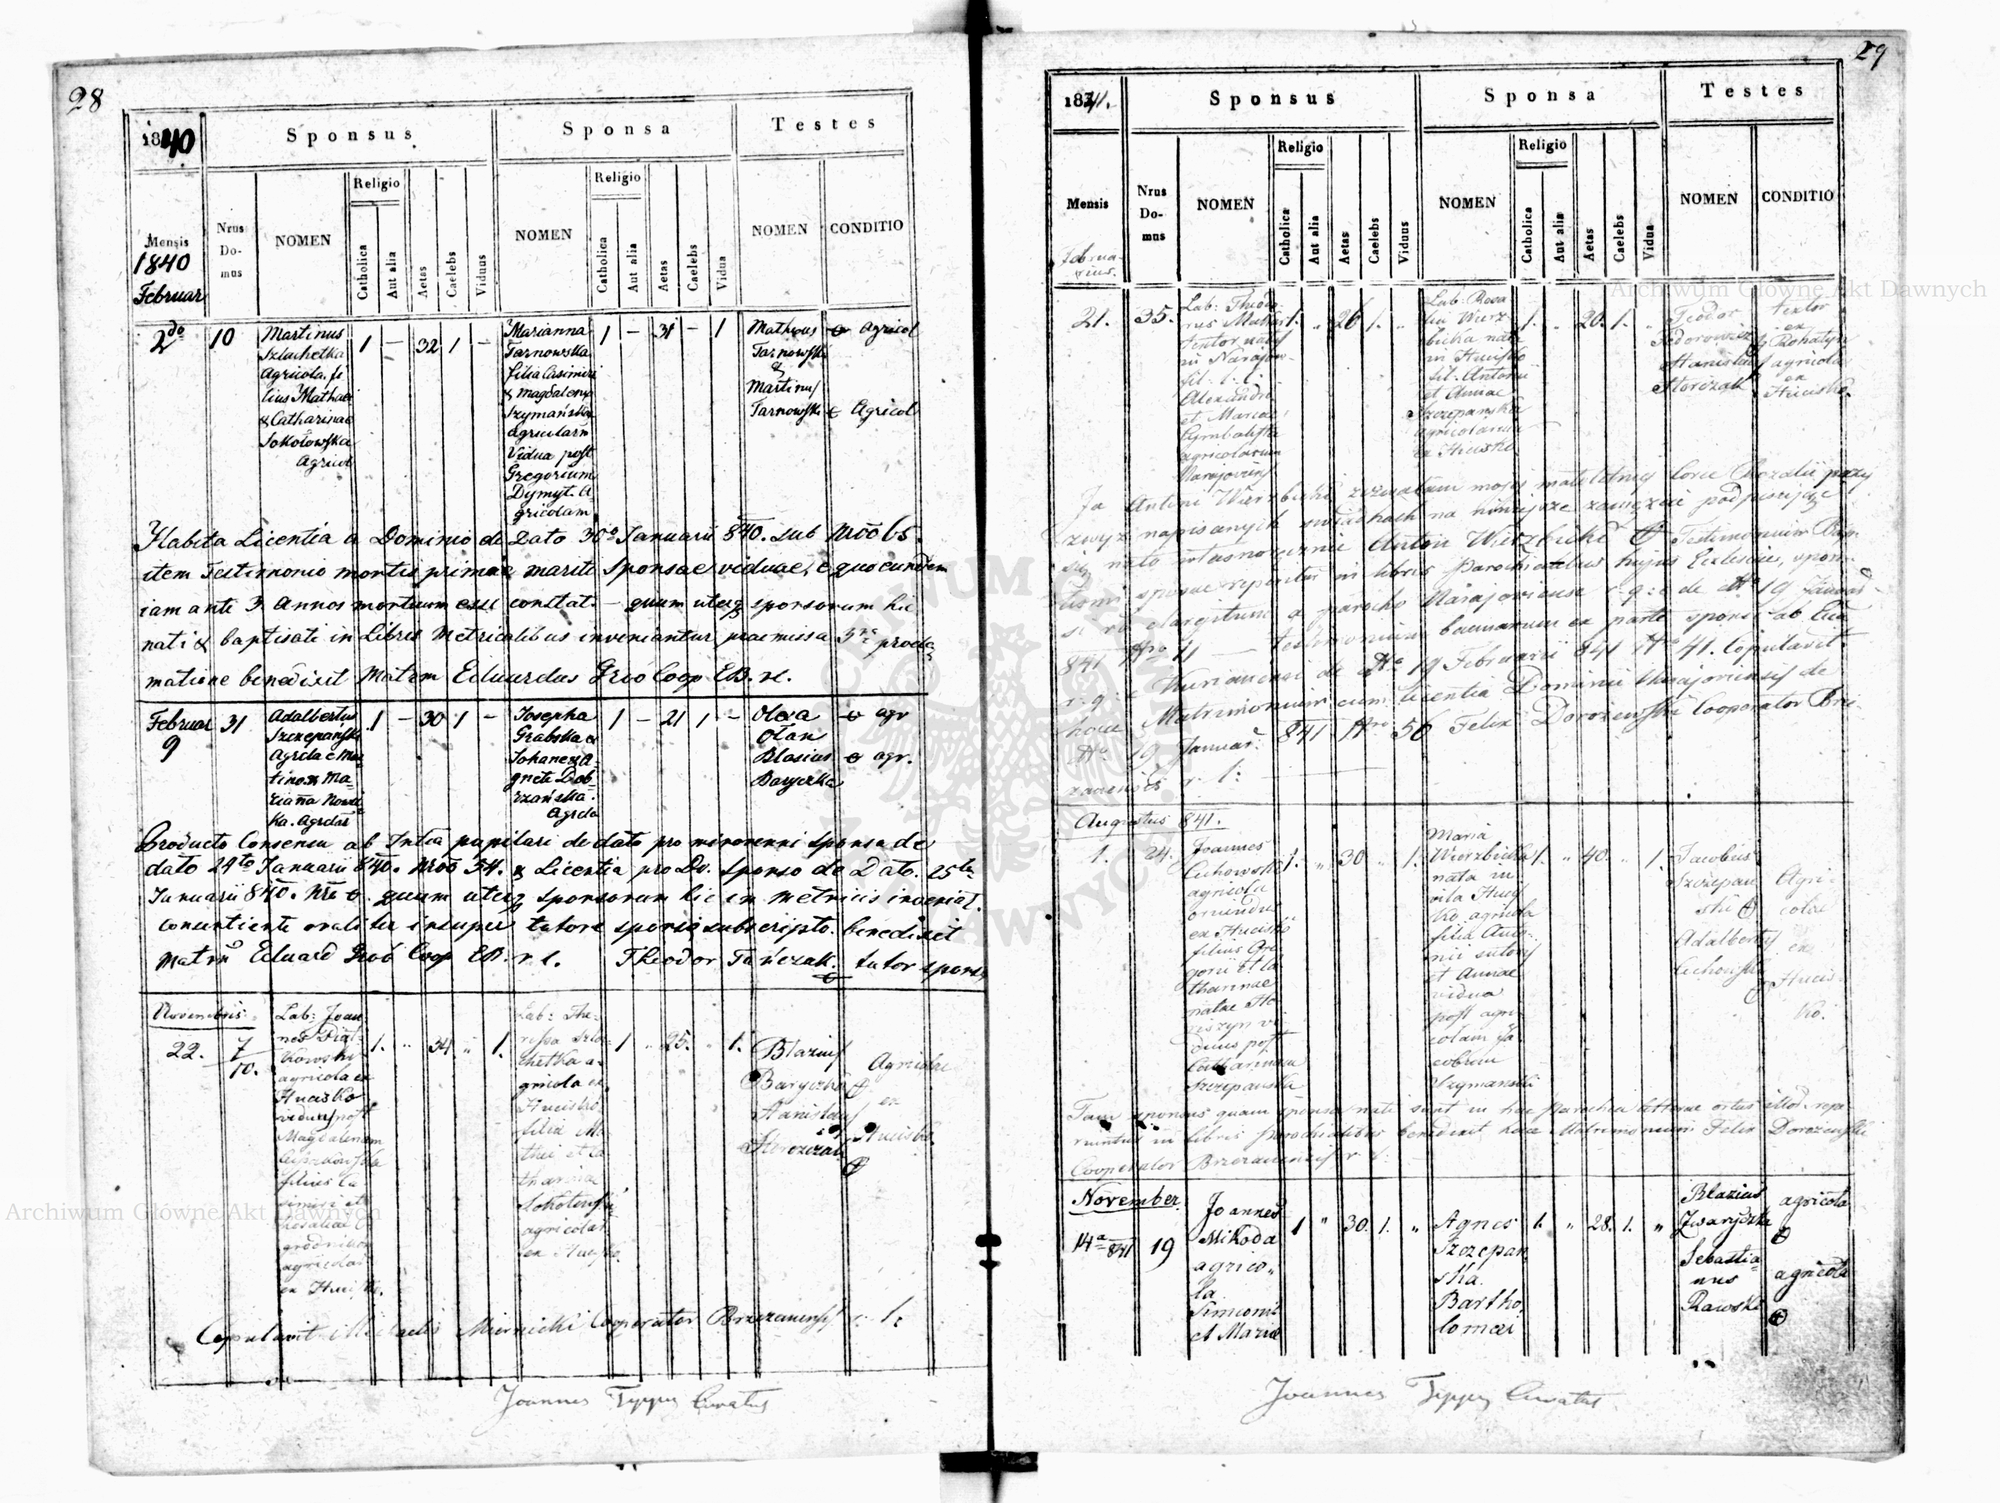 28
1840
Sponsus
Sponsa
Testes
Mensis
1840
Februar
Nrus Do-mus
NOMEN
Religio
Catholica
Aut alia
Aetas
Caelebs
Viduus
NOMEN
Religio
Catholica
Aut alia
Aetas
Caelebs
Vidua
NOMEN
CONDITIO
2do
10
Martinus
Szlachetka
Agricola fi
lius Mathaei
& Catharinae
Sokołowska
Agricol
1 – 32 1 –
Marianna
Tarnowska
filia Casimiri
& Magdalena
Szymańska
agricolarum
Vidua post
Gregorium
Dymyt. A
gricolam
1 – 31 – 1
Matheus
Tarnowski
&
Martinus
Tarnowski
Agricol
Agricol
Habita Licentia a Dominio de Dato 30a Januarii 840. sub Nro 65.
item Testimonio mortis primae mariti Sponsae viduae, e quo eundem
iam anti 3 Annos mortuum esse constat – quum uterq sponsorum hic
nati & baptisati in Libris Metricalibus inveniantur praemissa 3na procla
matione benedixit Matrm Eduardus Groo Coop EB. rl.
Februar
9
31
Adalbertus
Szczepański
Agricla e Mar
tino & Ma
rianna Nowi
ka. Agrclar
1 – 30 1 –
Josepha
Grabska e
Johane & A
gnete Dob
rzańska.
Agrcla
1 – 21 1 –
Olexa
Ołan
Blasius
Baryczka
agr
agr.
Producto Consensu ab Intia pupilari de dato pro minorenni sponsa de
dato 29to Januarii 840. Nro 34. & Licentia pro Do. Sponso de Dato. 25ta
Januarii 840. Nro 6. quum uterq sponsorum hic in metricis inveniat.
consentiente oraliter insuper tutore sponsa subscripto. benedixit
matrm Eduard Groo Coop EB. rl. Theodor Tańczak. tutor sponsa
Novembris
22.
7
10.
Lab: Joan-
nes
agricola ex
Hucisko
viduus post
Magdalenam
filius Ca
simiri et
Rosaliae
agricolar
ex Hucisko.
1. " 34 " 1.
Lab: The-
ressa Szla-
chetka a-
gricola ex
Hucisko.
filia Ma-
thei et Ca
tharina
agricolar
ex Hucisko
1 " 25. " 1.
Blazius
Baryczka
Stanislaus
Agricolae
ex
Hucisko
Copulavit Michaelis Miernicki Cooperator Brzezanensis r. l.
Joannes Typpey Curatus
29
1841.
Sponsus
Sponsa
Testes
Mensis
Februa-
rius.
Nrus Do-mus
NOMEN
Religio
Catholica
Aut alia
Aetas
Caelebs
Viduus
NOMEN
Religio
Catholica
Aut alia
Aetas
Caelebs
Vidua
NOMEN
CONDITIO
21.
35.
Lab: Theodo-
rus
textor natus
in Narajow-
fil: l: l:
Alexandri
et Mariae
agricolarum
1. " 26 1. "
Lab: Rosa
lia Wierz-
bicka nata
in Hucisko
fil: Antonii
et Annae
Szczepanska
agricolarum
ex Hucisko
1. " 20. 1. "
Teodor
Fedorowicz
Stanislaus
textor
ex
Rohatyn
agricola
ex
Hucisko.
Ja Antoni Wierzbicki zezwalam mojej małoletniej Corce Rozalii przy
zwyż napisanych świadkach na niniejsze zawiązać podpisując
się nato własnoręcznie Antoni Wierzbicki Testimonium
sponsae reperitur in libris parochialibus hujus Ecclesiae, spon-
si elargitum a parocho Narajoviensi r. g: c de 19 Januar
841 Nro 11 — testimonium bannorum ex parte sponsi ab
r. g: c Kurianensi de 19 Februarii 841 41. Copulavit
hocce Matrimonium cum Licentia Dominii Narajoviensis de
19 Januar. 841 Nro 56 Felix Dorożewski Cooperator Brze-
zanensis r. l:
Augustus 841.
1.
24.
Joannes
Cichowski
agricola
oriundus
ex Hucisko
filius Gre
gorii et Ca
tharinae
natae
duus post
Catharinam
Szczepanska
1. " 30 " 1.
Maria
Wierzbicka
nata in
villa Hucis
ko agricola
filia Anto-
nii sutoris
et Annae
vidua
post agri-
colam Ja
cobum
Szymanski
1. " 40. " 1.
Jacobus
Szczepan
ski
Adalbertus
Cichowski
Agri-
colae
ex
Hucis-
ko.
Tam sponsus quam sponsa nati sunt in hac Parochia
in libris parochialibus benedixit hocce Matrimonium Felix Dorożewski
Cooperator Brzezanensis r. l:
November
14a 841
19
Joannes
Mikoda
agrico„
la
Simeonis
et Maria
1 " 30. 1. "
Agnes
Szczepan
ska.
Bartho
lomaei
1. " 28. 1. "
Blazius
Zwaryczka
Sebastia-
nus
Rawski
agricola
agricola
Joannes Typpey Curatus
Archiwum Główne Akt Dawnych
Archiwum Główne Akt Dawnych